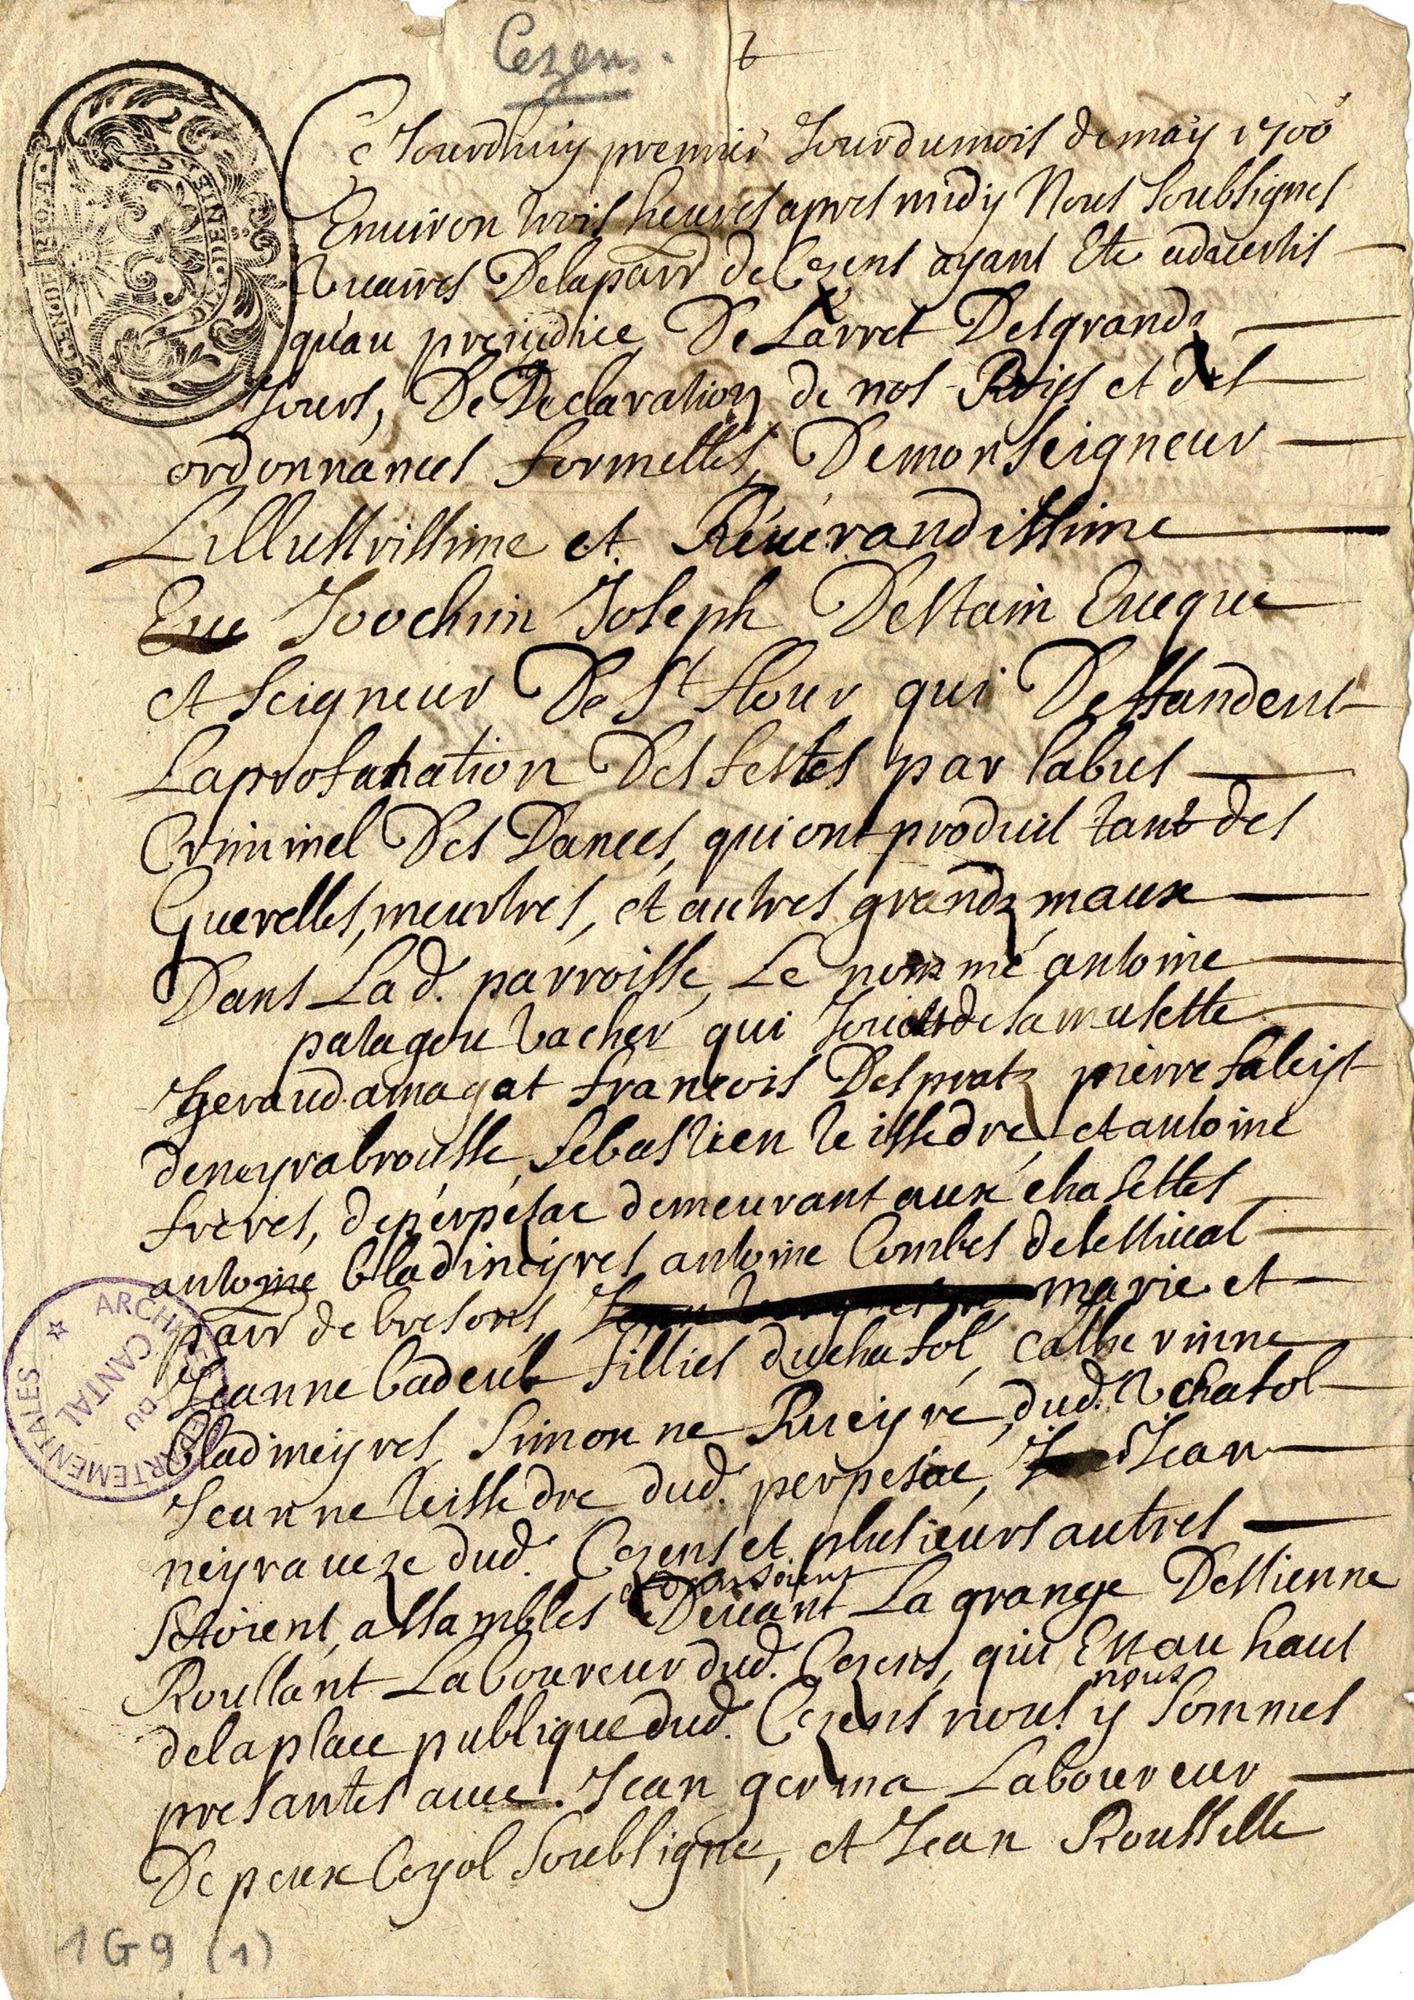 Cezens.
Ce Jourdhuiy premier Jour du mois de maÿ 1700
Environ trois heures apres midÿ Nous soubsignes
vicaires De la parr de Cezens aÿant Ete advertis
qu'au prejudice De Larret Des grands
Jours, De Declaration de nos Roÿs et des
ordonnances formelles, De monseigneur
Lillustrissime et Révérandissime
Eve Joochim Joseph Destain Eveque
et seigneur De St flour qui Deffandent
La profanation Des festes par labus
Criminel Des Dances, qui ont produit tant des
Querelles, meurtres, et autres grands maux
Dans Lad. parroisse, Le nommé antoine
patageu vacher qui Jouoit de la musette
geraud amagat francois Desprats pierre falcyt
de neyrabrousse, sebastien teissedre, et antoine
freres, de perpesac demeurant aux chasettes
antoine bladineÿres antoine Combes de lestival
parr de bresons marie et
Jeanne badeul fillies du chasol, catherinne
bladineÿres, simonne Rueÿre, dud. chasol
Jeanne teissedre dud. perpesac, Jean
neÿraveze dud. Cezens et plusieurs autres
et dansoient
setoient, assambles Devant La grange Destienne
Roullant Laboureur dud. Cezens, qui Est au haut
nous
de la place publique dud. Cezens nous ÿ sommes
presantes avec. Jean germa Laboureur
De peux Coyol soubsigne, et Jean Rousselle
1G9 (1)
ARCHIVES DÉPARTEMENTALES
DU
CANTAL